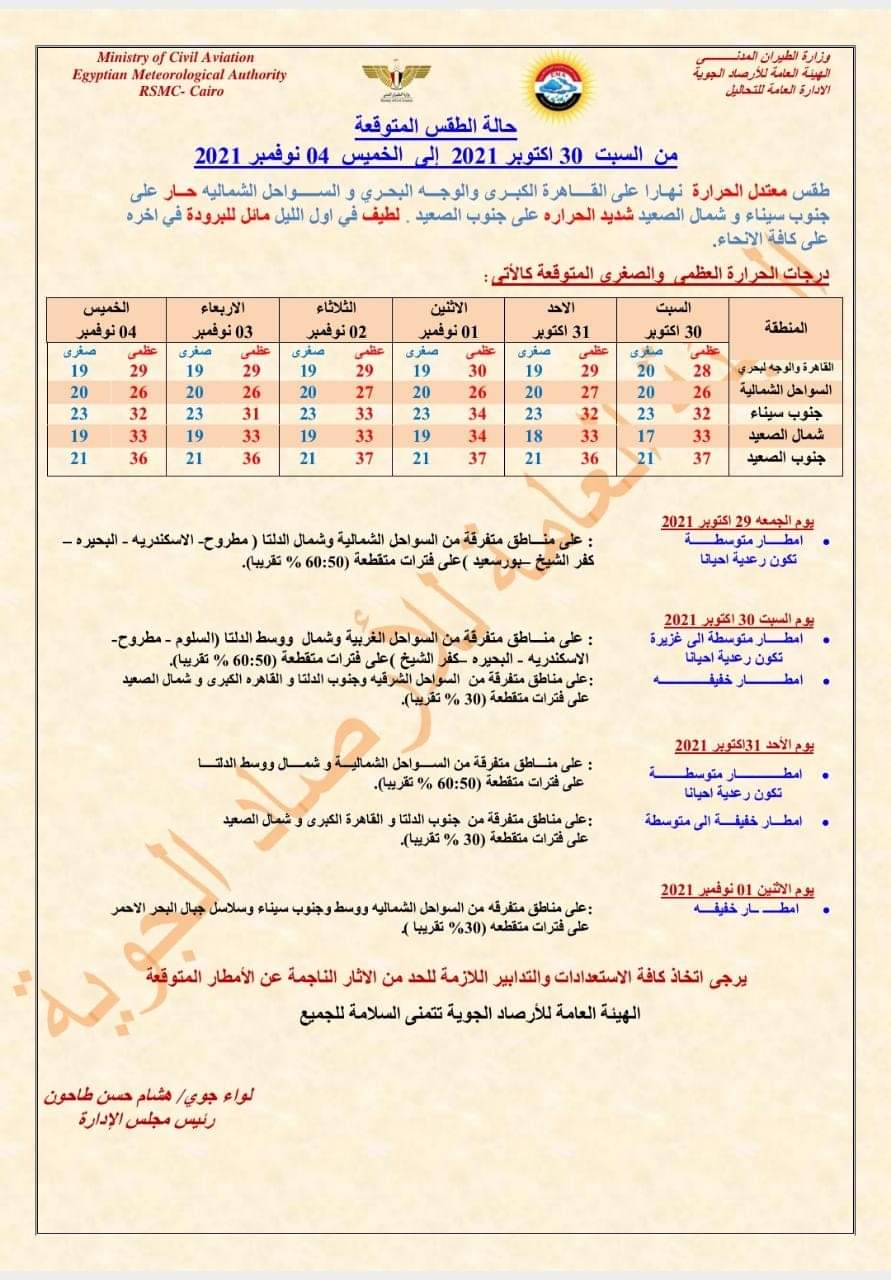 Ministry of Civil Aviation
Egyptian Meteorological Authority
RSMC- Cairo
وزارة الطيران المدنـــــــى
الهيئة العامة للأرصاد الجوية
الادارة العامة للتحاليل
حالة الطقس المتوقعة
من السبت 30 اكتوبر 2021 إلى الخميس 04 نوفمبر 2021
طقس معتدل الحرارة نهارا على القـــاهرة الكبـرى والوجــه البحـري و الســـــواحل الشماليه حــار على
جنوب سيناء و شمال الصعيد شديد الحراره على جنوب الصعيد . لطيف في اول الليل مائل للبرودة في اخره
على كافة الانحاء.
درجات الحرارة العظمى والصغرى المتوقعة كالأتى:
المنطقة السبت 30 اكتوبر الاحد 31 اكتوبر الاثنين 01 نوفمبر الثلاثاء 02 نوفمبر الاربعاء 03 نوفمبر الخميس 04 نوفمبر
عظمى صغرى عظمى صغرى عظمى صغرى عظمى صغرى عظمى صغرى عظمى صغرى
القاهرة والوجه لبحري 28 20 29 19 30 19 29 19 29 19 29 19
السواحل الشمالية 26 20 27 20 26 20 27 20 26 20 26 20
جنوب سيناء 32 23 32 23 34 23 33 23 31 23 32 23
شمال الصعيد 33 17 33 18 34 19 33 19 33 19 33 19
جنوب الصعيد 37 21 36 21 37 21 37 21 36 21 36 21
يوم الجمعه 29 اكتوبر 2021
• امطــــار متوسطــــــة : على منـــاطق متفرقة من السواحل الشمالية وشمال الدلتا ( مطروح- الاسكندريه - البحيره –
تكون رعدية احيانا كفر الشيخ –بورسعيد )على فترات متقطعة (60:50 % تقريبا).
يوم السبت 30 اكتوبر 2021
• امطــــار متوسطة الى غزيرة : على منــاطق متفرقة من السواحل الغربية وشمال ووسط الدلتا (السلوم - مطروح-
تكون رعدية احيانا الاسكندريه - البحيره –كفر الشيخ )على فترات متقطعة (60:50 % تقريبا).
• امطـــــــار خفيفــــــــــه :على مناطق متفرقة من السواحل الشرقيه وجنوب الدلتا و القاهره الكبرى و شمال الصعيد
على فترات متقطعة (30 % تقريبا).
يوم الأحد 31اكتوبر 2021
• امطـــــــــــار متوسطـــــــــة : على منــاطق متفرقة من الســواحل الشماليــة و شمــال ووسط الدلتــــا
تكون رعدية احيانا على فترات متقطعة (60:50 % تقريبا).
• امطــار خفيفــة الى متوسطة :على مناطق متفرقة من جنوب الدلتا و القاهرة الكبرى و شمال الصعيد
على فترات متقطعة (30 % تقريبا).
يوم الاثنين 01 نوفمبر 2021
• امطـــ ـــار خفيفــــه :على مناطق متفرقه من السواحل الشماليه ووسط وجنوب سيناء وسلاسل جبال البحر الاحمر
على فترات متقطعه (30% تقريبا ).
يرجى اتخاذ كافة الاستعدادات والتدابير اللازمة للحد من الاثار الناجمة عن الأمطار المتوقعة
الهيئة العامة للأرصاد الجوية تتمنى السلامة للجميع
لواء جوي/ هشام حسن طاحون
رئيس مجلس الإدارة
الهيئة العامة للأرصاد الجوية